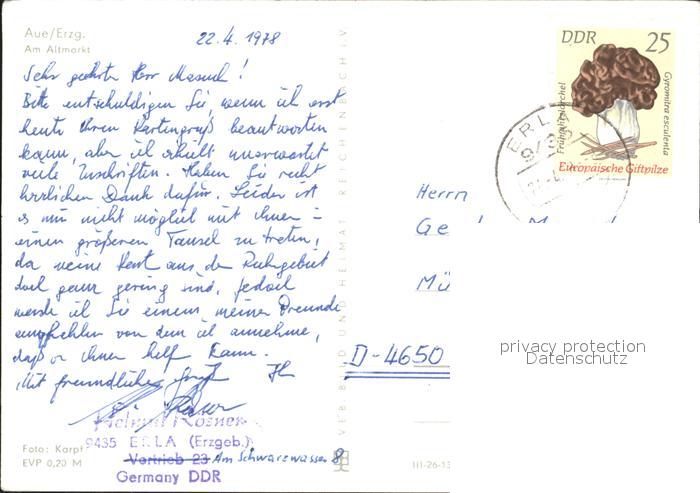 Aue/Erzg.
Am Altmarkt
22.4.1978
Sehr geehrter Herr
Bitte entschuldigen Sie, wenn ich erst
heute Ihren Kartengruß beantworten
kann, aber ich erhielt unerwartet
viele Zuschriften. Haben Sie recht
herzlichen Dank dafür. Leider ist
es mir nicht möglich mit Ihnen in
einen größeren Tausch zu treten,
da meine aus dem Ruhrgebiet
ganz gering sind, jedoch
werde ich Sie einem meiner Freunde
empfehlen von dem ich annehme,
daß er Ihnen helfen kann.
Mit freundlichem Gruß Ihr
Helmut Rösner
9435 ERLA (Erzgeb.)
Vertrieb 23 Am Schwarzwasser 8
Germany DDR
Foto: Karpf
EVP 0,20 M
VEB BILD UND HEIMAT REICHENBACH I.V.
III-26-13
DDR 25
Frühjahrslorchel
Gyromitra esculenta
Europäische Giftpilze
ERL
Herrn
Ge
Mü
D-4650
privacy protection
Datenschutz